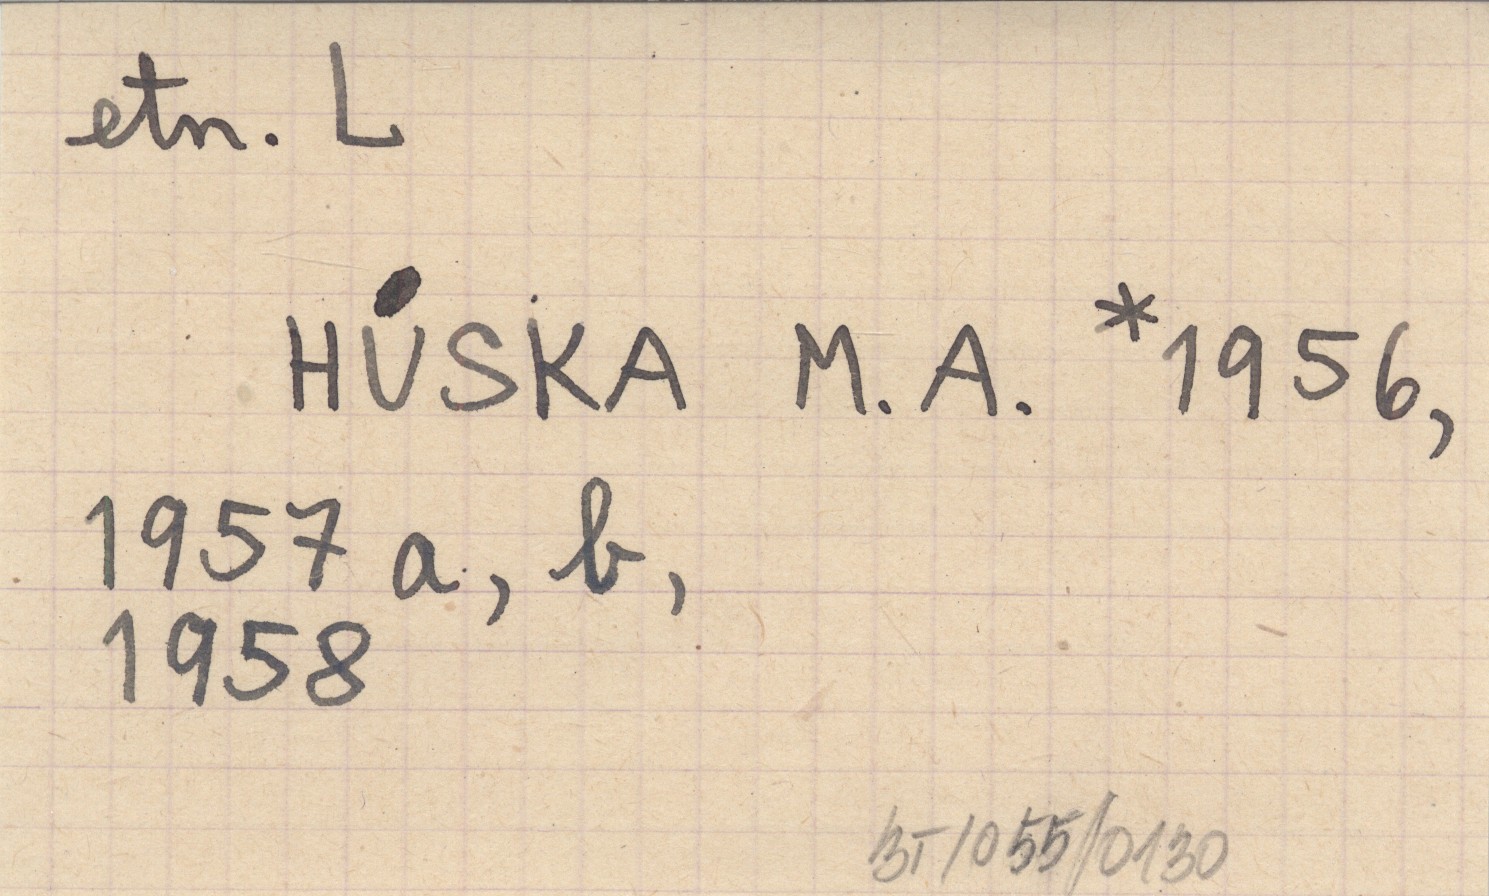 etn. L
HÚSKA M. A. *1956,
1957 a, b,
1958
BT/055/0130